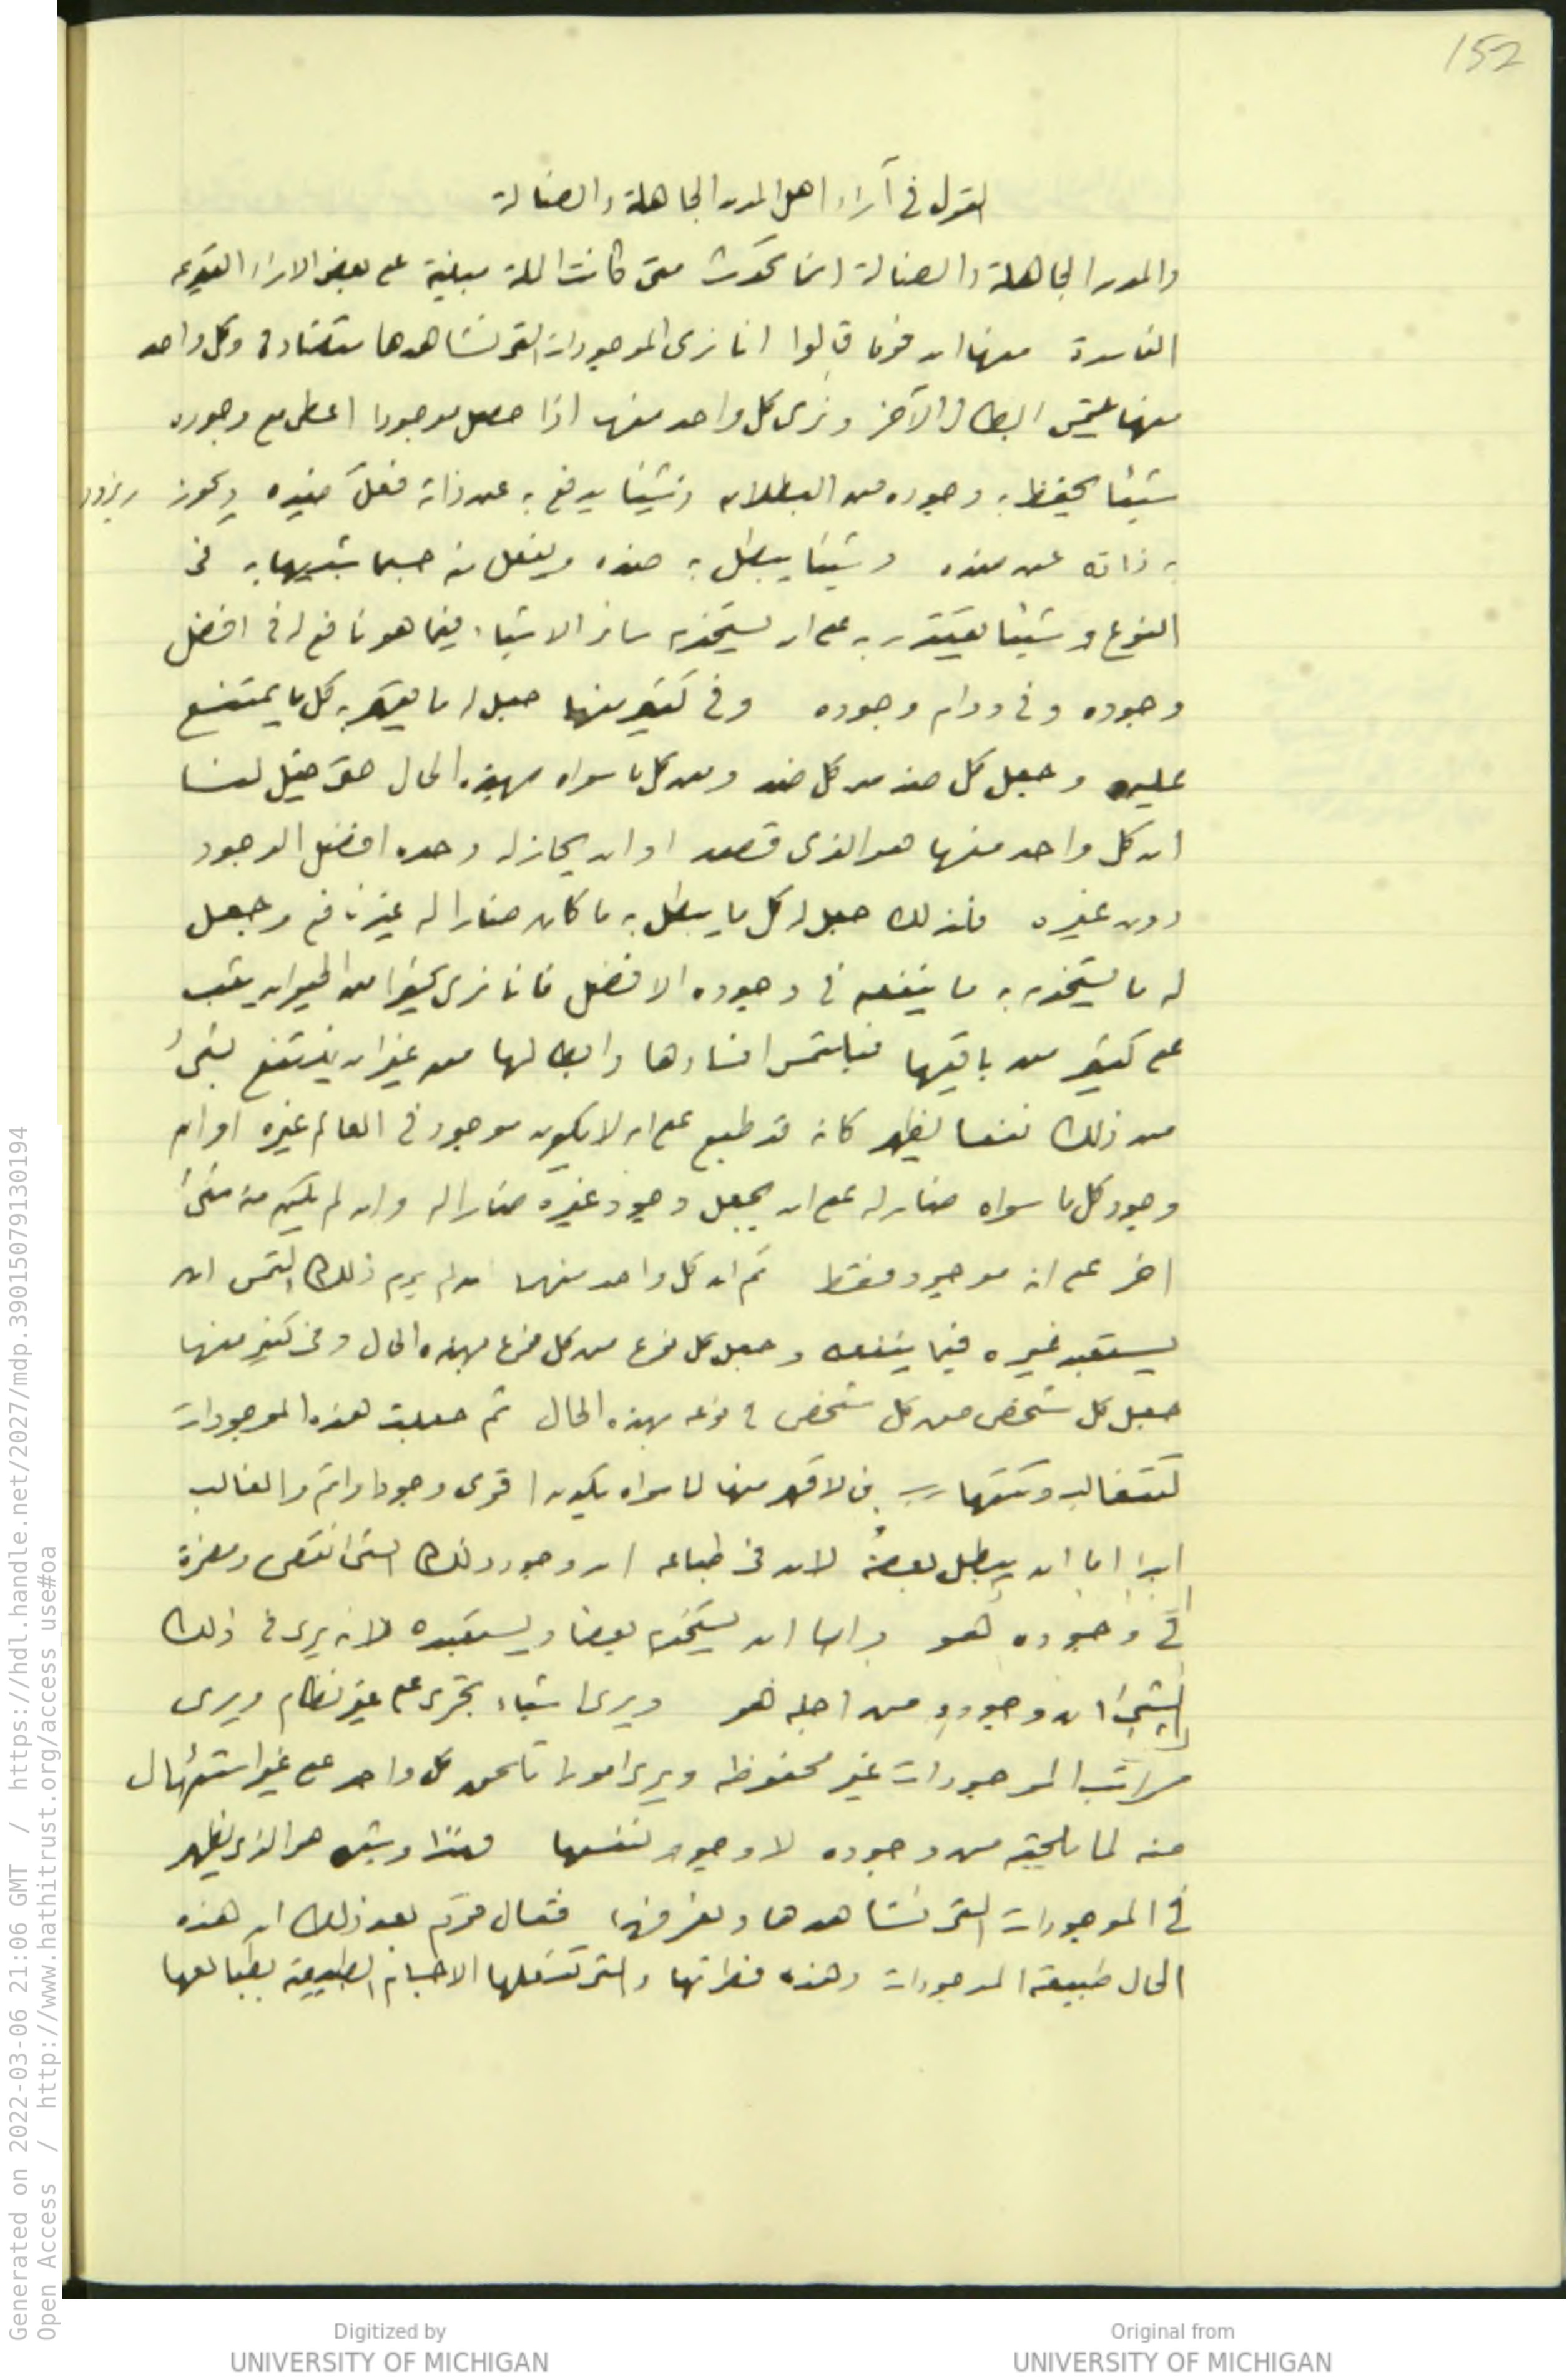 152
القول في آراء اهل المدن الجاهلة والضالة
والمدن الجاهلة والضالة انما تحدث متى كانت الملة مبنية على بعض الاراء القديمة
الفاسدة منها ان قوما قالوا انا نرى الموجودات التى نشاهدها متضادة وكل واحد
منها يلتمس ابطال الآخر ونرى كل واحد منها اذا حصل موجودا اعطى مع وجوده
شيئا يحفظ به وجوده من البطلان وشيئا يدفع به عن ذاته فعل ضده ويحوز
به ذاته عن ضده وشيئا يبطل به ضده ويفعل منه جسما شبيها به فى
النوع وشيئا يقتدر به على ان يستخدم سائر الاشياء فيما هو نافع له فى افضل
وجوده وفى دوام وجوده وفى كثير منها جعل له ما يقهر به كل ما يمتنع
عليه وجعل كل ضد من كل ضد ومن كل ما سواه بهذه الحال حتى خيل لنا
ان كل واحد منها هو الذى قصد او ان يحاز له وحده افضل الوجود
دون غيره فلذلك جعل له كل ما يبطل به ما كان ضارا له غير نافع وجعل
له ما يستخدم به ما ينفعه فى وجوده الافضل فانا نرى كثيرا من الحيوان يثب
على كثير من باقيها فيلتمس افسادها وابطالها من غير ان ينتفع بشئ
من ذلك نفعا يظهر كانه قد طبع على ان لا يكون موجود فى العالم غيره او ان
وجود كل ما سواه ضار له على ان يجعل وجود غيره ضارا له وان لم يكن منه شئ
اخر على انه موجود فقط ثم ان كل واحد منهما ان لم يرم ذلك التمس ان
يستعبد غيره فيما ينفعه وجعل كل نوع من كل نوع بهذه الحال وفى كثير منها
جعل كل شخص من كل شخص فى نوعه بهذه الحال ثم جعلت هذه الموجودات
تتغالب وتتهارب فالاقهر منها لما سواه يكون اقوى وجودا واتم والغالب
ابدا اما ان يبطل بعضه لان فى طباعه ان وجود ذلك الشئ نقص ومضرة
فى وجوده هو واما ان يستخدم بعضا ويستعبده لانه يرى فى ذلك
الشئ ان وجوده من اجله هو ويرى اشياء تجرى على غير نظام ويرى
مراتب الموجودات غير محفوظه ويرى امورا تلحق كل واحد على غير استئهال
منه لما يلحقه من وجوده لا وجود لنفسها فهذا وشبهه هو الذى يظهر
فى الموجودات التى نشاهدها ونعرفها فقال قوم بعد ذلك ان هذه
الحال طبيعة الموجودات وهذه فطرتها والتى تفعلها الاجسام الطبيعية بطبائعها
Generated on 2022-03-06 21:06 GMT / https://hdl.handle.net/2027/mdp.39015079130194
Open Access / http://www.hathitrust.org/access_use#oa
Digitized by
UNIVERSITY OF MICHIGAN
Original from
UNIVERSITY OF MICHIGAN